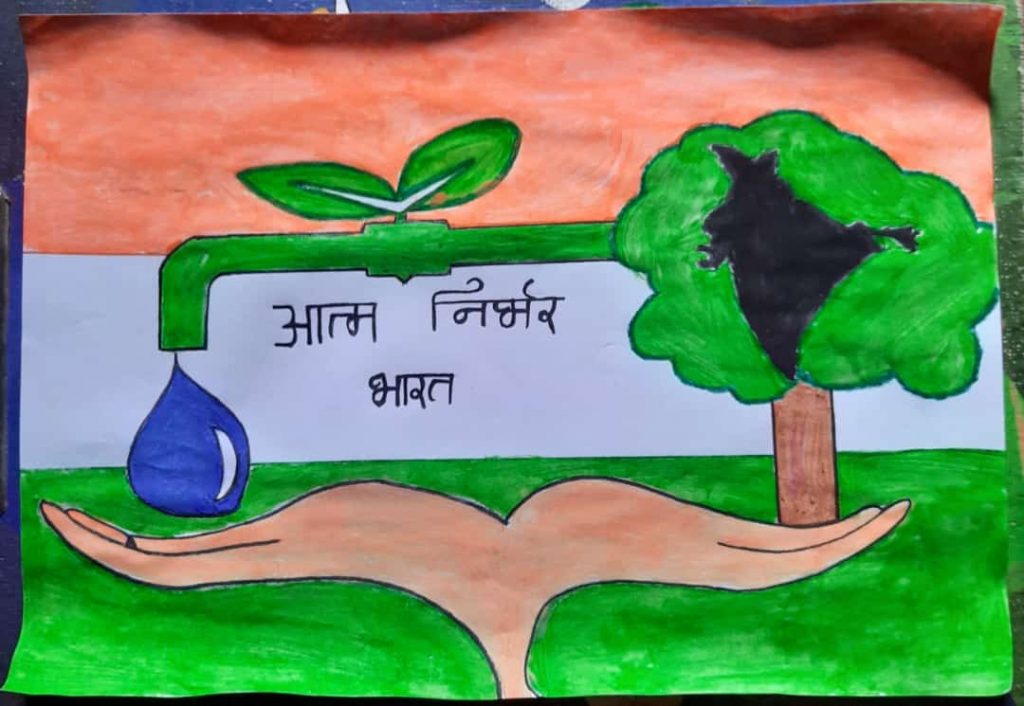 आत्म निर्भर
भारत